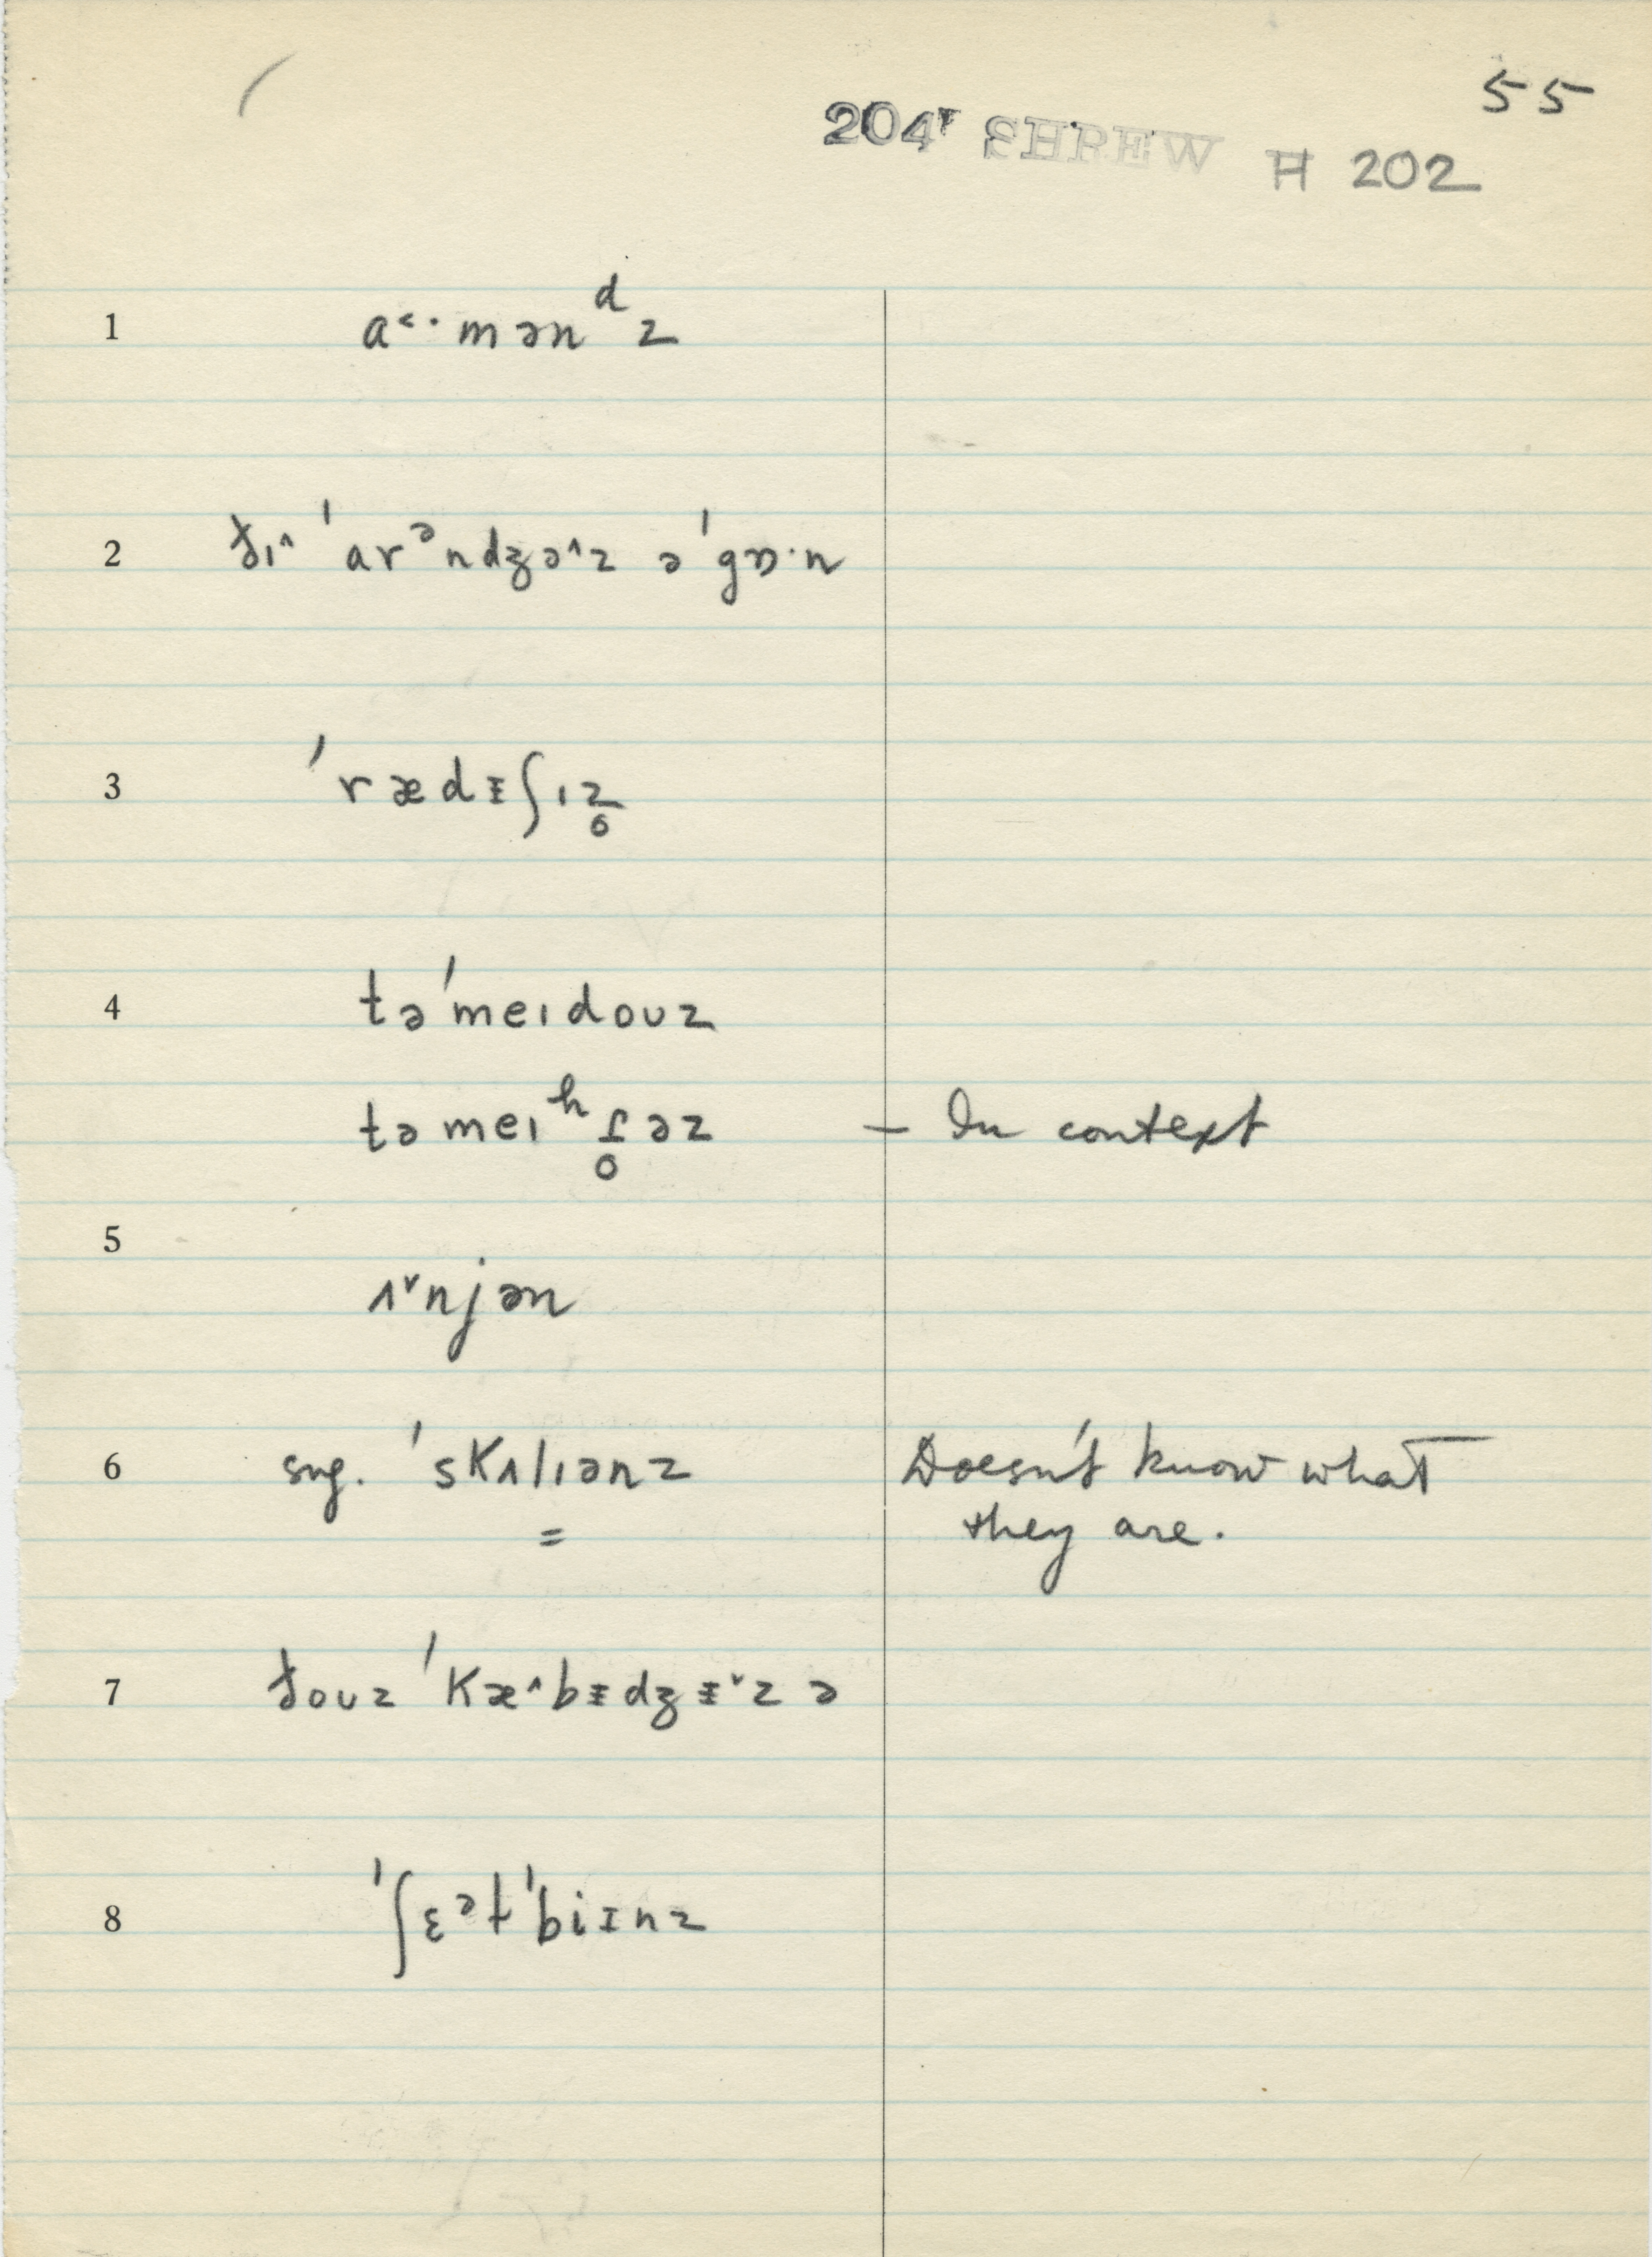 55
204 SHREW H 202
1 a˂·mənᵈz
2 ðɪ˄ ˈarᵊndʒə˄z əˈgɒ·n
3 ˈrædᵻʃɪz̥
4 təˈmeɪdoʊz
təmeɪʰɾ̥əz – In context
5 ʌ˅njən
6 sug. ˈskʌlɪənz Doesn't know what
= they are.
7 ðoʊz ˈkæ˄bᵻdʒᵻ˅z ə
8 ˈʃɛᵊtˈbiɪnz